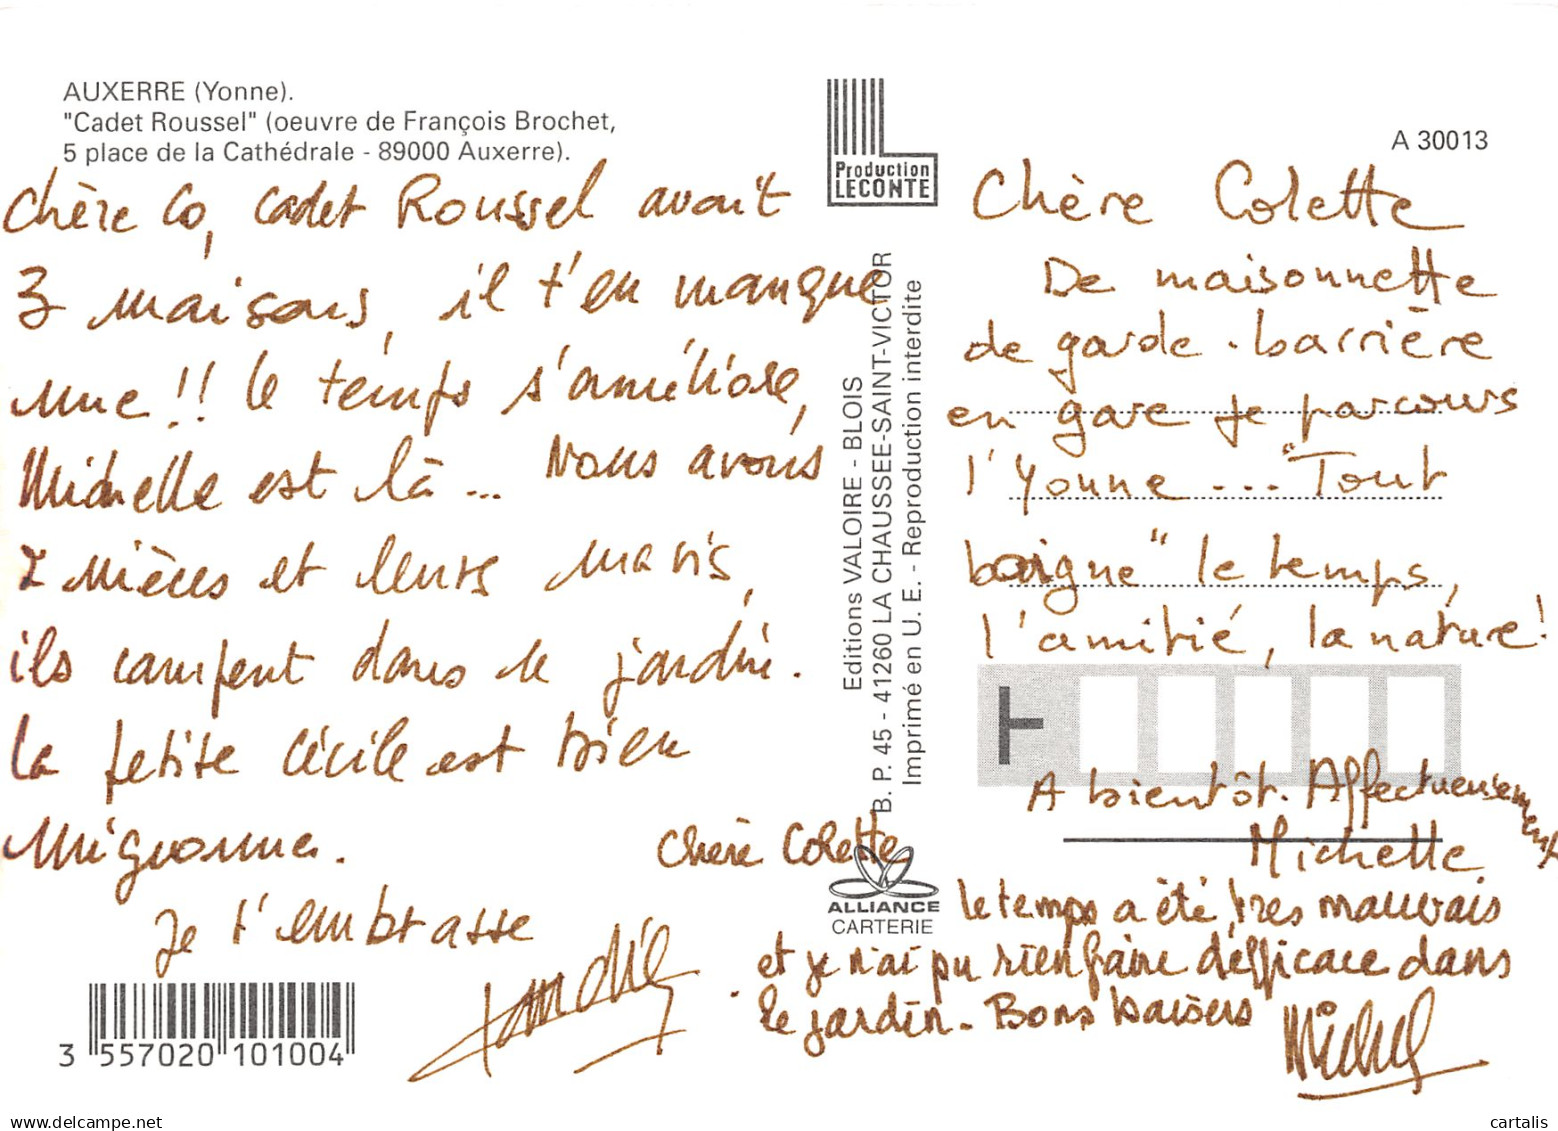 AUXERRE (Yonne).
"Cadet Roussel" (oeuvre de François Brochet,
5 place de la Cathédrale - 89000 Auxerre).
Chère Co, Cadet Roussel avait
3 maisons, il t'en manque
une !! le temps s'améliore,
Michelle est là ... Nous avons
2 nièces et leurs maris,
ils campent dans le jardin.
La petite Cécile est bien
mignonne.
Je t'embrasse
3 557020 101004
Production
LECONTE
Editions VALOIRE - BLOIS
B. P. 45 - 41260 LA CHAUSSEE-SAINT-VICTOR
Imprimé en U. E. - Reproduction interdite
ALLIANCE
CARTERIE
A 30013
Chère Colette
De maisonnette
de garde-barrière
en gare je parcours
l'Yonne ... "Tout
baigne" le temps,
l'amitié, la nature !
A bientôt. Affectueusement
Michelle
Chère Colette
le temps a été très mauvais
et je n'ai pu rien faire d'efficace dans
le jardin. Bons baisers
Michel
delcampe.net
cartalis